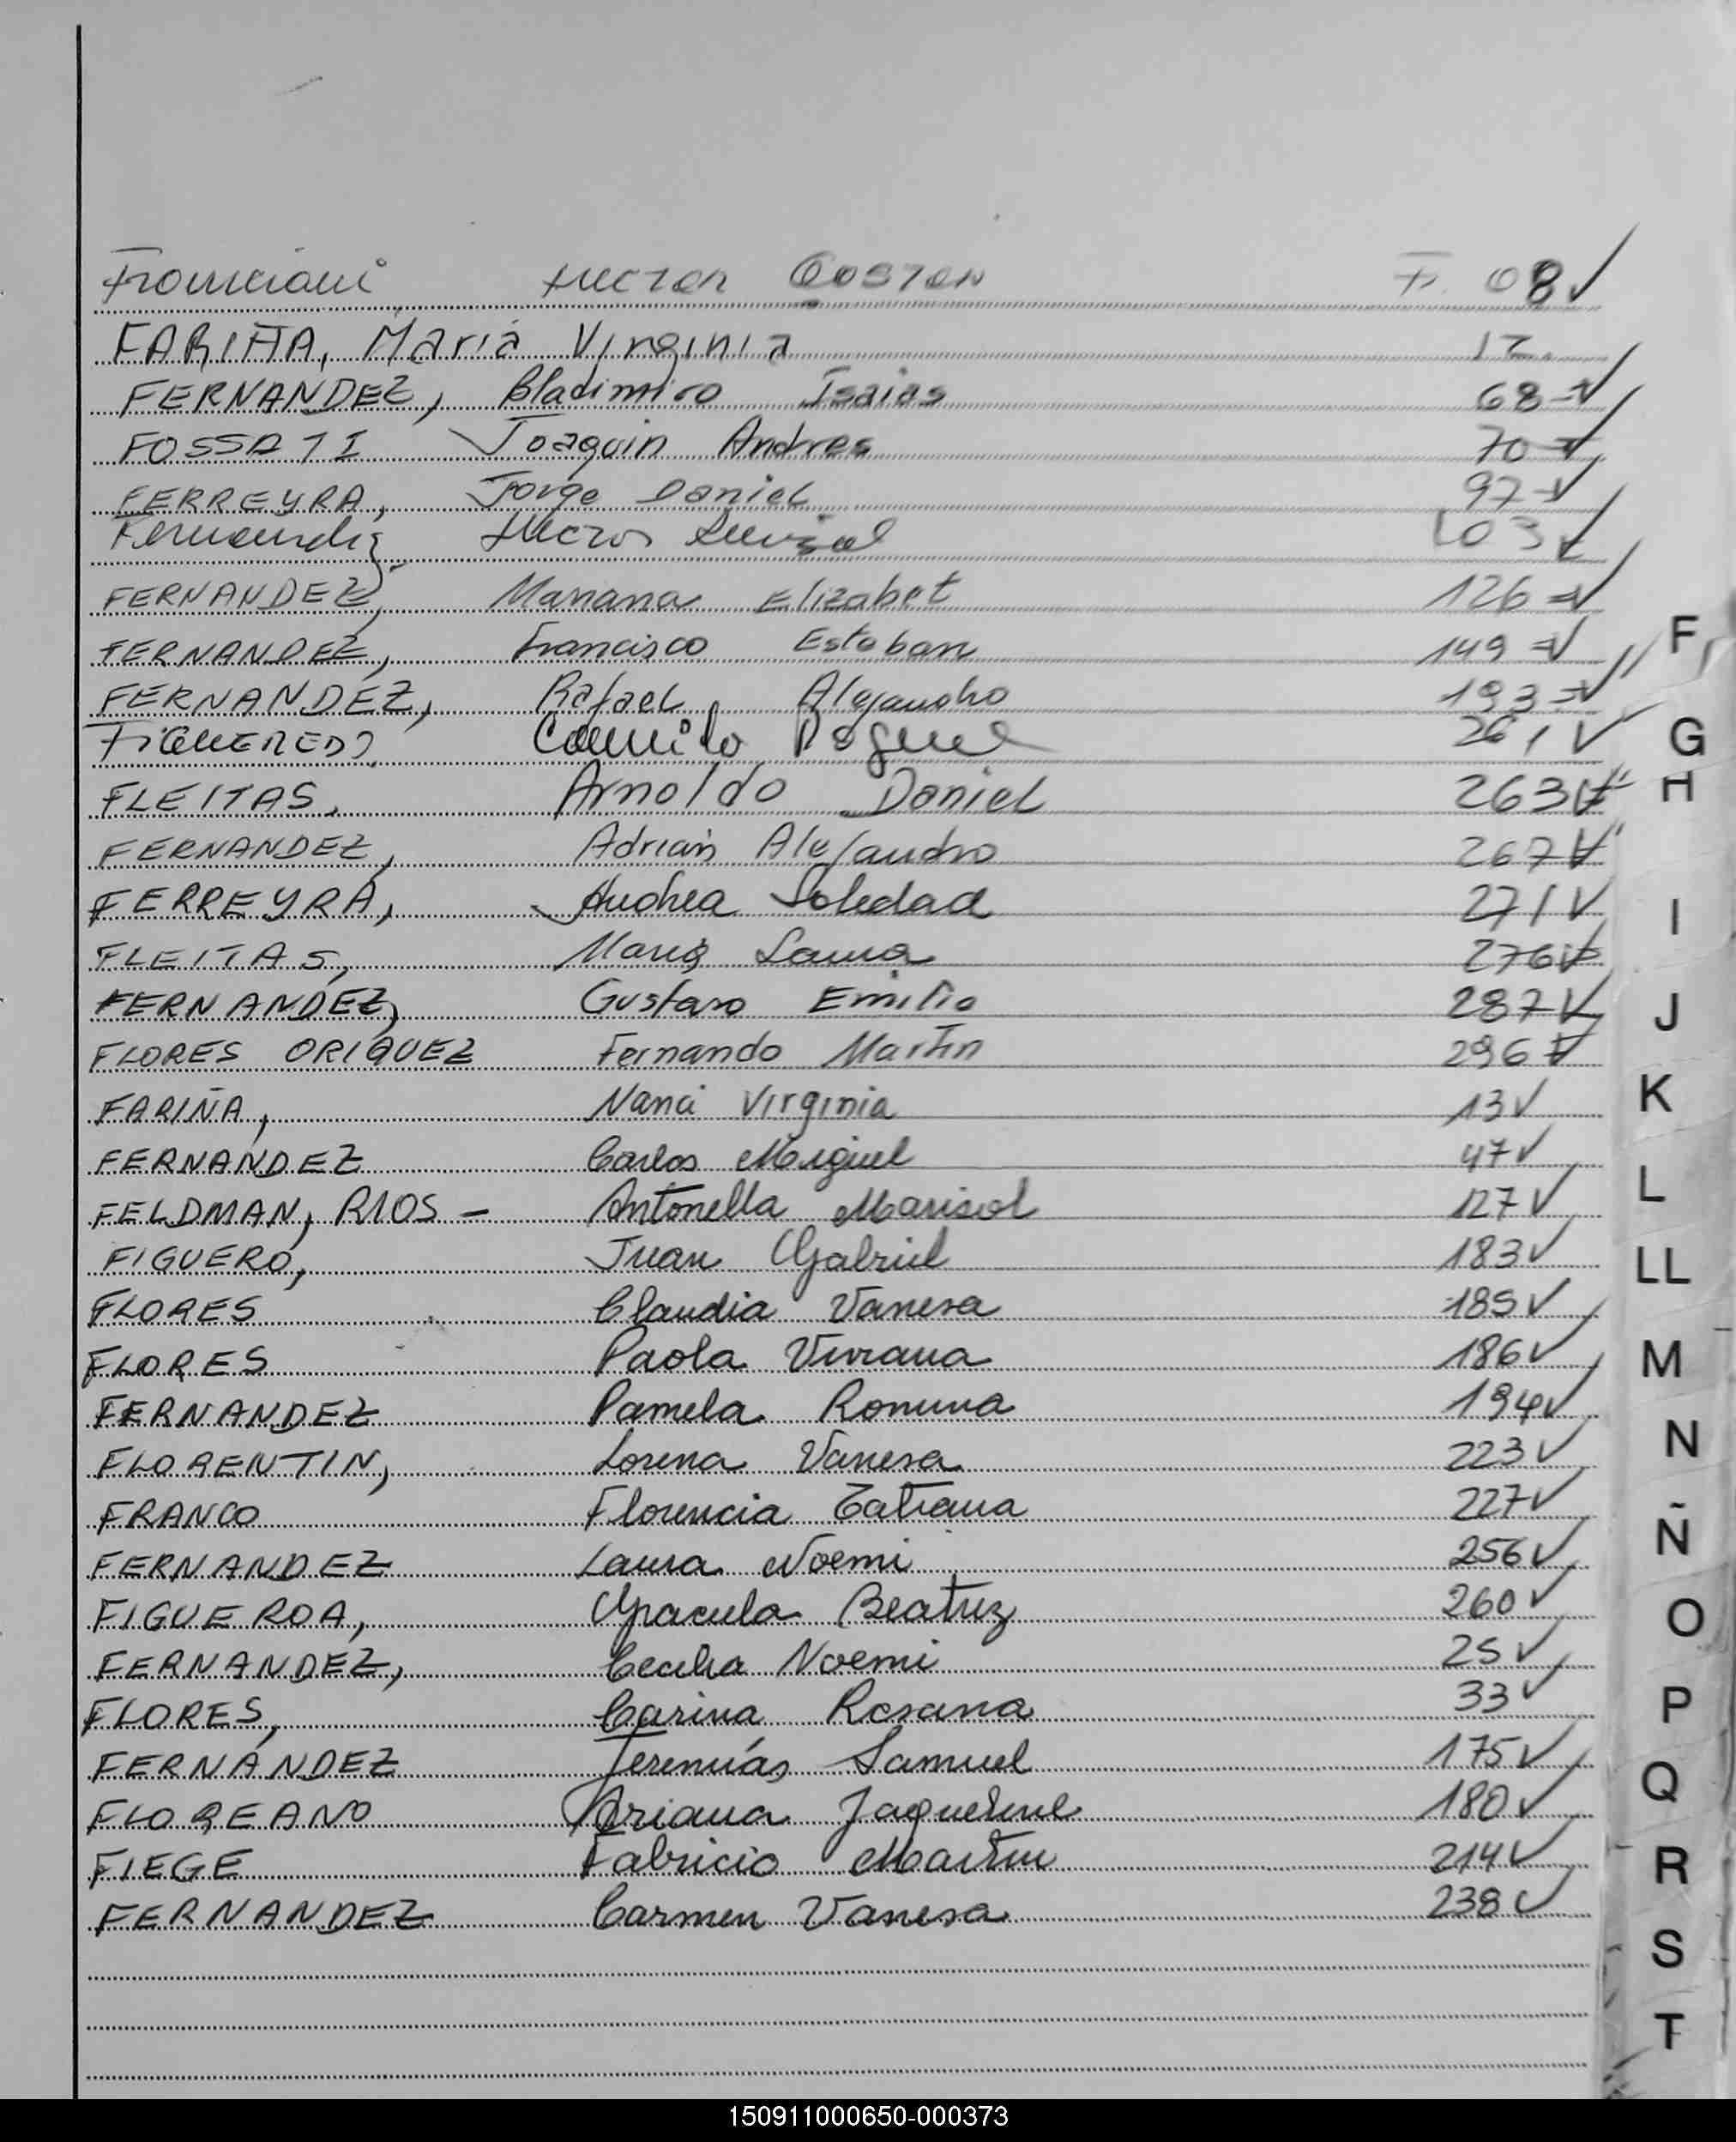 HECTOR GASTON F. 08
FARIÑA, Maria Virginia 12
FERNANDEZ, Bladimiro Isaias 68
FOSSATI Joaquin Andres 70
FERREYRA, Jorge Daniel 97
Fernandez Hector 103
FERNANDEZ, Mariana Elizabet 126
FERNANDEZ, Francisco Esteban 149
FERNANDEZ, Rafael Alejandro 193
FIGUEREDO, Camilo 261
FLEITAS, Arnoldo Daniel 263
FERNANDEZ, Adrian Alejandro 267
FERREYRA, Andrea Soledad 271
FLEITAS, Maria Laura 276
FERNANDEZ, Gustavo Emilio 287
FLORES ORIGUEZ Fernando Martin 296
FARIÑA, Virginia 13
FERNANDEZ Carlos Miguel 47
FELDMAN, RIOS - Antonella Marisol 127
FIGUERO, Juan Gabriel 183
FLORES Claudia Vanesa 185
FLORES Paola Viviana 186
FERNANDEZ Pamela Romina 194
FLORENTIN, Lorena Vanesa 223
FRANCO Florencia Tatiana 227
FERNANDEZ Laura Noemi 256
FIGUEROA, Graciela Beatriz 260
FERNANDEZ, Cecilia Noemi 25
FLORES, Carina Rosana 33
FERNÁNDEZ Jeremías Samuel 175
FLOREANO Ariana Jaqueline 180
FIEGE Fabricio Martin 214
FERNANDEZ Carmen Vanesa 238
F
G
H
I
J
K
L
LL
M
N
Ñ
O
P
Q
R
S
T
150911000650-000373